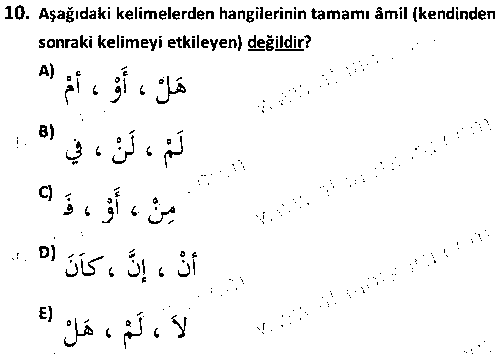 10. Aşağıdaki kelimelerden hangilerinin tamamı âmil (kendinden
sonraki kelimeyi etkileyen) değildir?
A) هَلْ ، أَوْ ، أمْ
B) لَمْ ، لَنْ ، في
C) مِنْ ، أَوْ ، فَ
D) أنْ ، إنَّ ، كاَنَ
E) لاَ ، لَمْ ، هَلْ